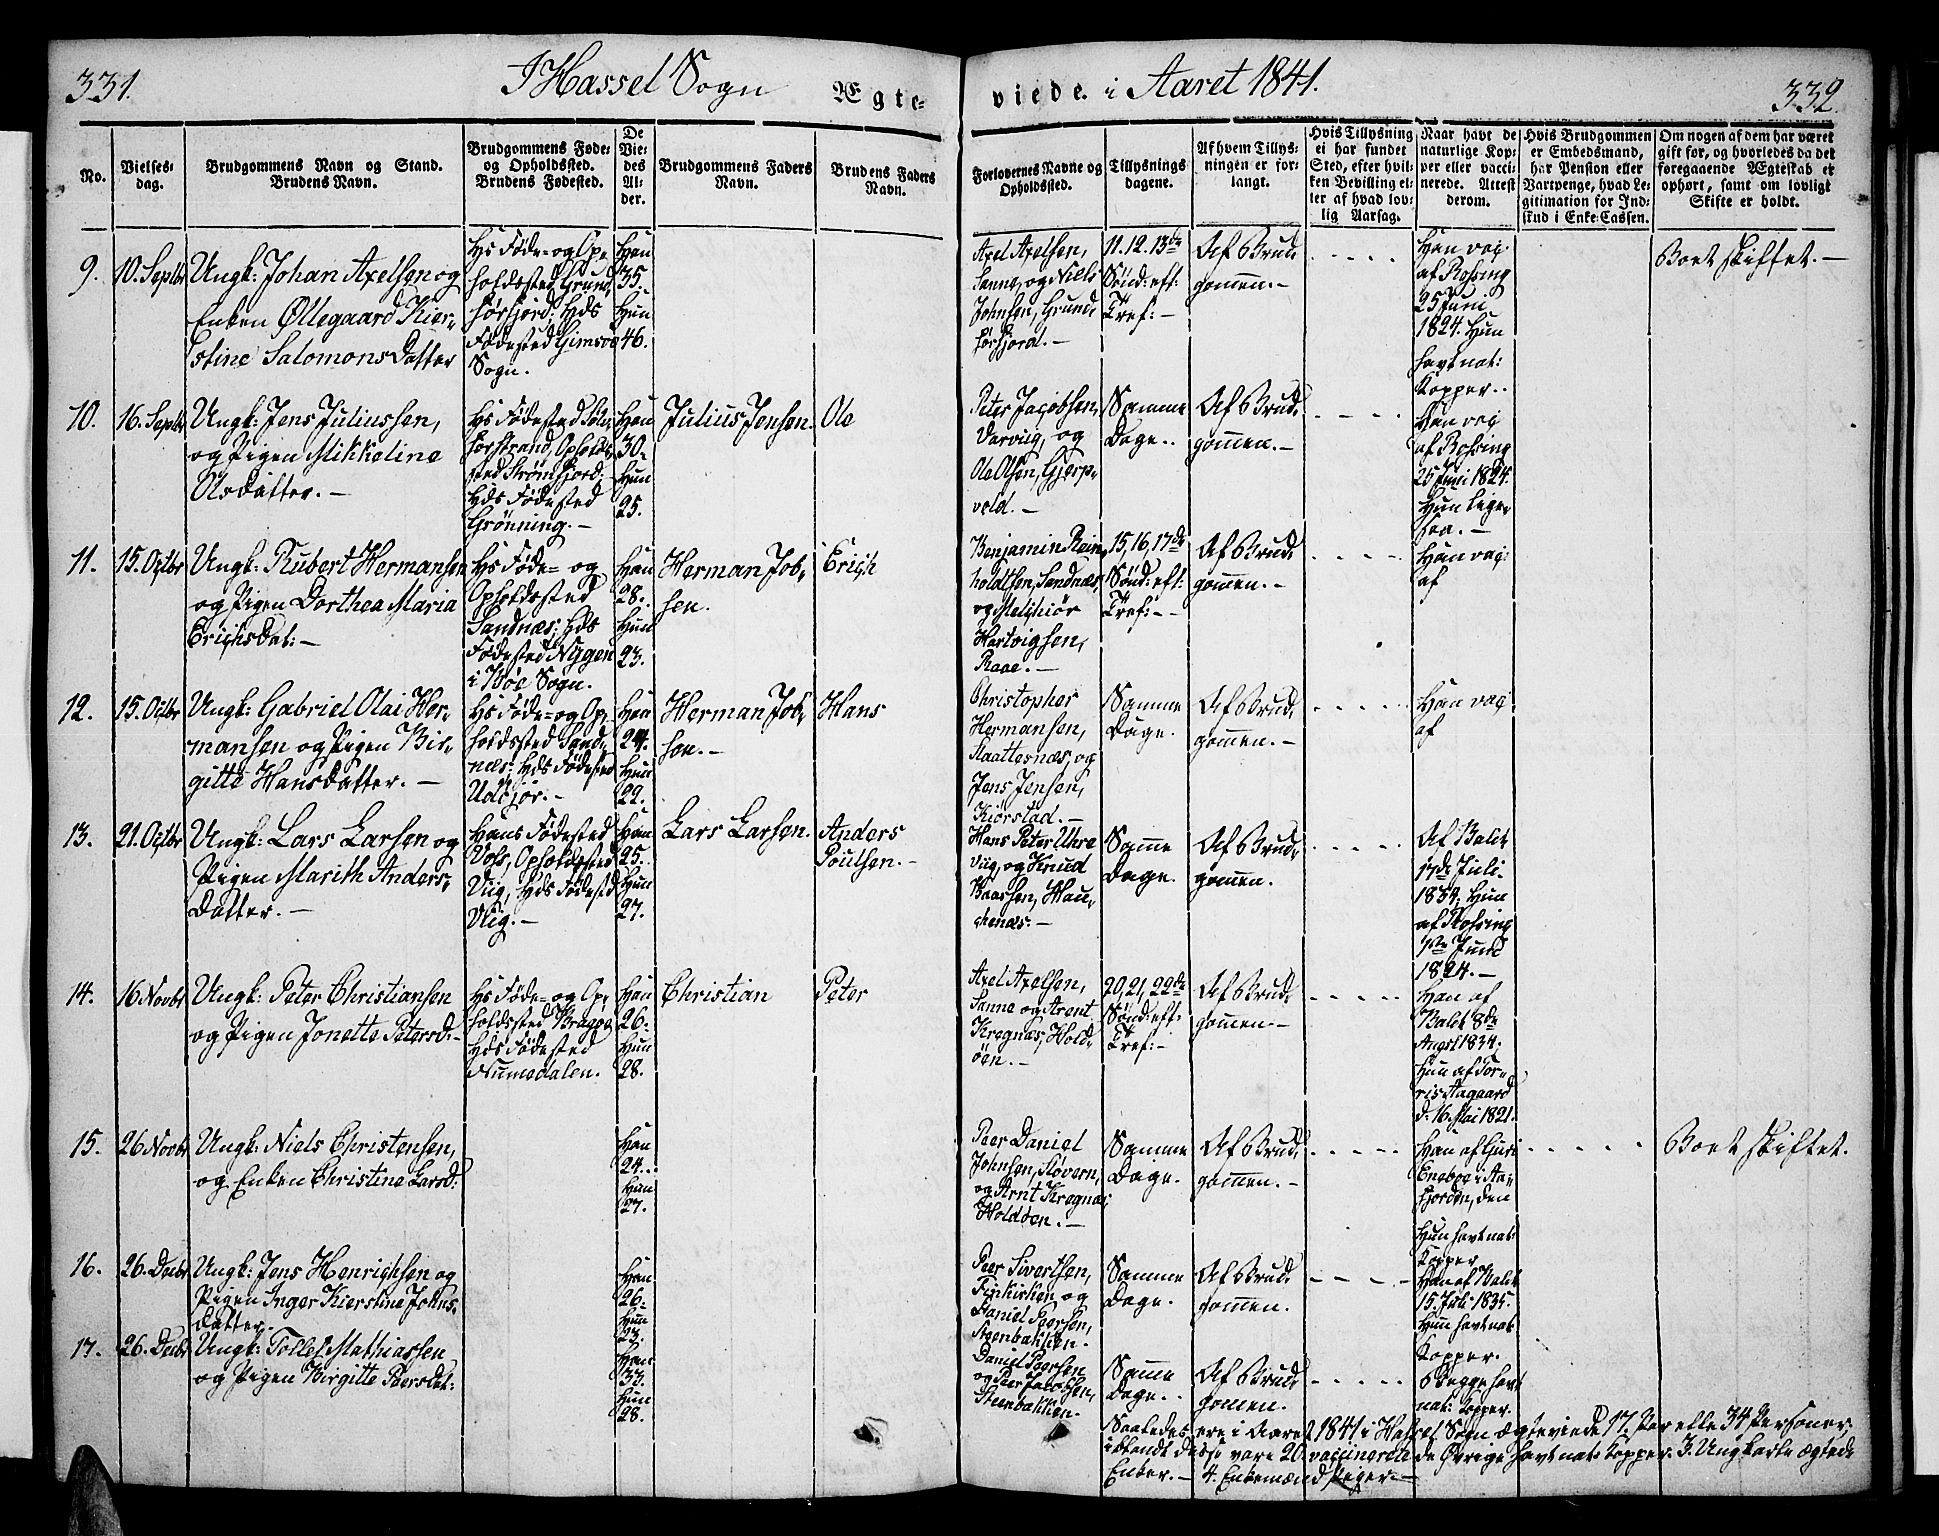 331.
I Hassel Sogn
Ægte-
viede i Aaret 1841.
332.
No.
Vielses-
dag.
Brudgommens Navn og Stand.
Brudens Navn.
Brudgommens Føde-
og Opholdssted.
Brudens Fødested.
De
Vie-
des
Al-
der.
Brudgommens Faders
Navn.
Brudens Faders
Navn.
Forlovernes Navne og
Opholdssted.
Tillysnings
dagene.
Af hvem Tillys-
ningen er for-
langt.
Hvis Tillysning
ei har fundet
Sted, efter hvil-
ken Bevilling el-
ler af hvad lov-
lig Aarsag.
Naar havt de
naturlige Kop-
per eller vacci-
nerede. Attest
derom.
Hvis Brudgommen
er Embedsmand,
har Pension eller
Vartpenge, hvad Le-
gitimation for Ind-
skud i Enke-Cassen.
Om nogen af dem har været
gift før, og hvorledes da det
foregaaende Ægteskab er
ophørt, samt om lovligt
Skifte er holdt.
9.
10. Septbr
Ungk: Johan Axelsen og
Enken Øllegaard Kier-
stine Salomonsdatter
Hs Føde- og Op-
holdssted Grund-
førfjord; Hds
Fødested Gimsøe
Sogn.
Han
35.
Hun
46.
Axel Axelsen,
Sanne, og Niels
Johnsen, Grund
førfjord. -
11. 12. 13de
Sønd: eft:
Tref: -
Af Brud-
gommen. -
Han vac:
af Rosing
25 Juni
1824. Hun
havt nat:
Kopper.
Boet skiftet. -
10.
16. Septbr
Ungk: Jens Juliussen,
og Pigen Mikkeline
Olsdatter. -
Han
30.
Hun
25.
Hds Fødested
Grønning. -
Julius Jensen.
Ole
Peter Jacobsen,
og
Ole Olsen,
Samme
Dage.
Af Brud-
gommen. -
Han vac
af Rosing
25 Juni 1824.
Hun lige-
saa. -
11.
15. Octbr
Ungk: Rubert Hermansen
og Pigen Dorthea Maria
Erichsdat: -
Hs Føde- og
Opholdssted
Sandnæs; Hds
Fødested Nyggen
i Bøe Sogn.
Han
28.
Hun
23.
Herman Job-
sen.
Erich
Benjamin Rein-
holdtsen, Sandnæs,
og Melchiør
Hartvigsen,
Raae. -
15, 16, 17de
Sønd: eft:
Tref: -
Af Brud-
gommen. -
Han vac:
af
12.
15. Octbr
Ungk: Gabriel Olai Her-
mansen og Pigen Bir-
gitte Hansdatter. -
Hs Føde- og Op-
holdssted Sand-
næs; Hds Fødested
Han
24.
Hun
22.
Herman Job-
sen. -
Hans
Christopher
Hermansen,
Skaattesnæs, og
Jens Jensen,
Kiørstad. -
Samme
Dage.
Af Brud-
gommen. -
Han vac
af
13.
21. Octbr
Ungk: Lars Larsen og
Pigen Marith Anders-
datter. -
Hans Fødested
Vols, Opholdssted
Viig, Hds Fødested
Viig. -
Han
25.
Hun
27.
Lars Larsen.
Anders
Poulsen. -
Hans Peter Uhre
Viig, og Knud
Baarsen, Hau-
chenæs. -
Samme
Dage.
Af Brud-
gommen.
Af Balck
17de Juli
1834; Hun
af Rosing
Juni
1824. -
14.
16 Novbr
Ungk: Peter Christiansen
og Pigen Jonette Petersd: -
Hs Føde- og Op-
holdssted Bragøe,
Hds Fødested
Numedalen.
Han
26.
Hun
28.
Christian
Peter
Axel Axelsen,
Sanne og Arent
Kregnæs, Hold-
øen. -
20, 21, 22de
Sønd: eft:
Tref: -
Af Brud-
gommen. -
Han af
Balck 8de
Augst 1834.
Hun af Tor-
ris Aagaard
d: 16 Mai 1821.
15.
26 Novbr
Ungk: Niels Christensen,
og Enken Christine Larsd:
Han
24.
Hun
27.
Peer Daniel
Johnsen, Støvern,
og Arnt Kregnæs,
Holdøen. -
Samme
Dage.
Af Brud-
gommen. -
Han af
i Aa-
fjorden, den
Hun havt nat:
Kopper
Boet skiftet.
16.
26. Decbr
Ungk: Jens Henrichsen og
Pigen Inger Kierstine Johns-
datter.
Han
26.
Hun
23.
Peer Sivertsen,
og
Daniel Peersen,
Steenbakken.
Samme
Dage.
Af Brud-
gommen.
Han af Balck
15. Juli 1835.
Hun havt nat:
Kopper.
17.
26. Decbr
Ungk: Tollef Mathiassen
og Pigen Birgitte Peersdat:
Han
33.
Hun
28.
Daniel Peersen
og Peer Jacobsen,
Steenbakken.
Samme
Dage.
Af Brud-
gommen.
Begge havt
nat: Kopper.
Saaledes ere i Aaret 1841 i Hassel Sogn ægteviede 17. Par elle 34 Personer,
iblandt disse vare 20. vaccinerede, de Øvrige havt nat: Kopper. 3. Ungkarle ægtede
Enker. - 4. Enkemænd Piger. -